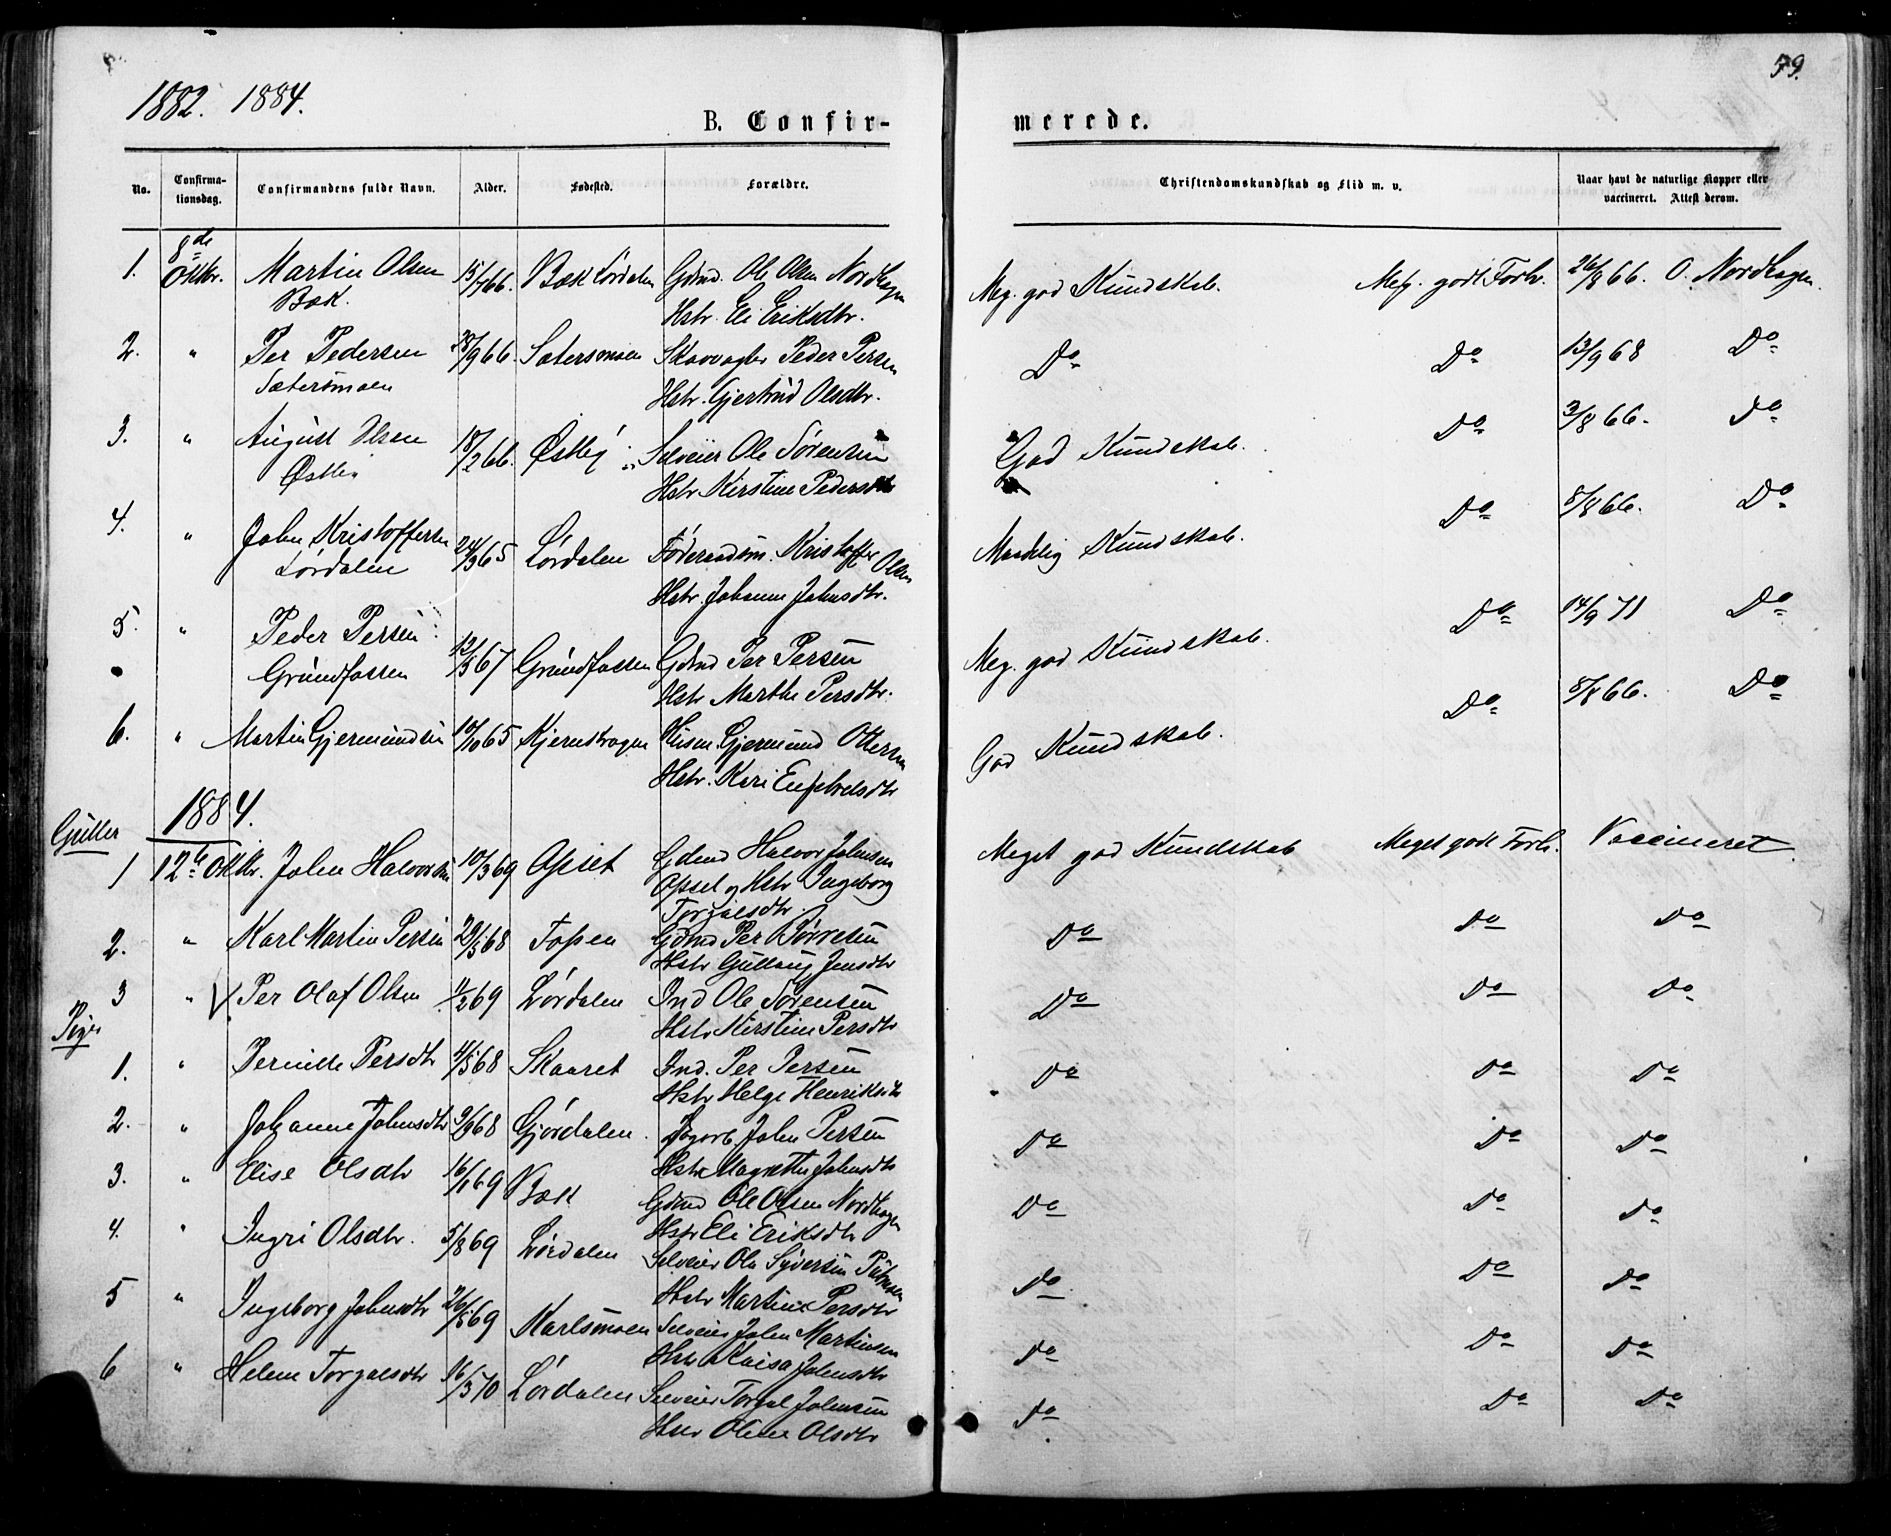 1882. 1884.
79.
B. Confir-
merede.
No.
Confirma-
tionsdag.
Confirmandens fulde Navn.
Alder.
Fødested.
Forældre.
Christendomskundskab og Flid m. v.
Naar havt de naturlige Kopper eller
vaccineret. Attest derom.
1. 8de Oktbr. Martin Olsen 15/7 66. Bæk Lørdalen Gdmd. Ole Olsen Nordhagen Meg. god Kundskab. Meg. godt Forh. 26/8 66. O. Nordhagen.
Bæk. Hstr. Eli Eriksdtr.
2. " Per Pedersen 28/9 66. Sætersmoen Skovvogter Peder Persen Do Do 13/9 68 Do
Sætersmoen Hstr. Gjertrud Olsdtr.
3. " August Olsen 18/2 66. Østby Selveier Ole Sørensen God Kundskab. Do 3/8 66. Do
Østby Hstr Kirstine Pedersdtr
4. " John Kristoffersen 24/9 65 Lørdalen Føderaadsm. Kristoffer Olsen Maadelig Kundskab. Do 8/8 66. Do
Lørdalen Hstr. Johanne Johnsdtr.
5. " Peder Persen 12/5 67 Grundfossen Gdmd Per Persen Meg. god Kundskab. Do 14/9 71 Do
Grundfossen Hstr Marthe Persdtr.
6. " Martin Gjermundsen 10/10 65 Kjernsvagen Husm. Gjermund Ottersen God Kundskab. Do 8/8 66. Do
Hstr. Kari Engebretsdtr
1884.
Gutter
1 12te Oktbr. John Halvorsen 10/3 69 Opset Gdmd Halvor Johnsen Meget god Kundskab Meget godt Forh. Vaccineret.
Opset og Hstr Ingeborg
Torgalsdtr.
2. " Karl Martin Persen 29/5 68 Fossen Gdmd Per Børresen Do Do Do
Hstr Gullaug Jensdtr
3 " V Per Olaf Olsen 1/2 69 Lørdalen Ind Ole Sørensen Do Do Do
Hstr Kirstine Persdtr
Piger
1. " Pernille Persdtr 4/5 68 Skaaret Ind. Per Persen Do Do Do
Hstr Helge Henriksdtr
2. " Johanne Johnsdtr 9/9 68 Gjørdalen. John Persen Do Do Do
Hstr Magrethe Johnsdtr
3. " Elise Olsdtr 16/1 69 Bæk Gdmd Ole Olsen Nordhagen Do Do Do
Hstr Eli Eriksdtr
4. " Ingri Olsdtr. 5/8 69 Lørdalen Selveier Ole Syversen Do Do Do
Hstr Martine Persdtr
5 " Ingeborg Johnsdtr 26/5 69 Karlsmoen Selveier John Martinsen Do Do Do
Hstr Kaisa Johnsdtr
6 " Helene Torgalsdtr 16/3 70 Lørdalen Selveier Torgal Johnsen Do Do Do
Hstr Oline Olsdtr